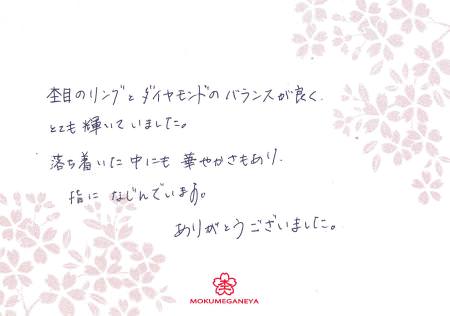 杢目のリングとダイヤモンドのバランスが良く、
とても輝いていました。
落ち着いた中にも華やかさもあり、
指になじんでいます。
ありがとうございました。
MOKUMEGANEYA